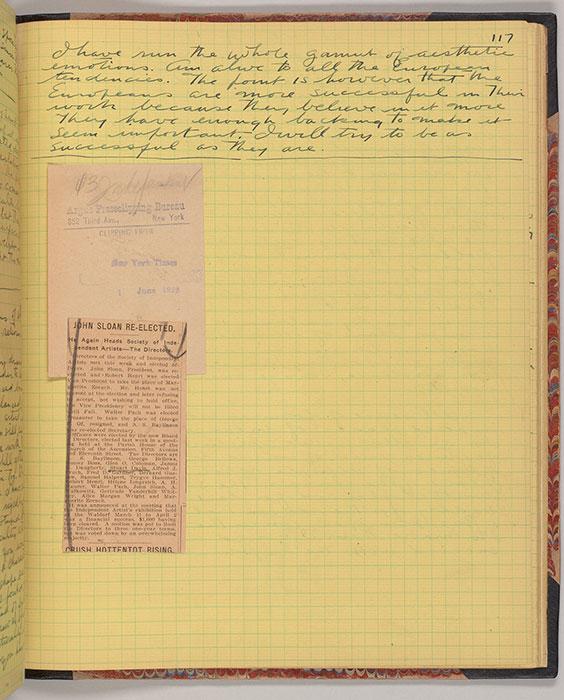 117
I have run the whole gamut of aesthetic
emotions. Am alive to all the European
tendencies. The point is however that the
Europeans are more successful in their
work because they believe in it more
They have enough backing to make it
seem important. I will try to be as
successful as they are.
Argus Pressclipping Bureau
352 Third Ave., New York
CLIPPING FROM
New York Times
1 June
JOHN SLOAN RE-ELECTED.
He Again Heads Society of Inde-
pendent Artists—The Directors.
Directors of the Society of Independent
Artists met this week and elected
John Sloan, President, was re-
elected and Robert Henri was elected
Vice President to take the place of Mar-
guerite Zorach. Mr. Henri was not
present at the election and later refusing
to accept, not wishing to hold office,
the Vice Presidency will not be filled
until Fall. Walter Pach was elected
Treasurer to take the place of George
Of, resigned, and A. S. Baylinson
was re-elected Secretary.
Officers were elected by the new Board
of Directors, elected last week in a meet-
ing held at the Parish House of the
Church of the Ascension, Fifth Avenue
and Eleventh Street. The Directors are
A. S. Baylinson, George Bellows,
Homer Boss, Glen O. Coleman, James
Daugherty, Stuart Davis, Alfred J.
Frueh, Fred
Samuel Halpert, Trygve Hammer,
Robert Henri, A. H.
Maurer, Walter Pach, John Sloan, A.
Walkowitz, Gertrude Vanderbilt Whit-
ney, Alice Morgan Wright and Mar-
guerite Zorach.
It was announced at the meeting that
the Independent Artist's exhibition held
at the Waldorf March 11 to April 2
was a financial success, $1,600 having
been cleared. A motion was put to limit
the Directors to three one-year terms.
It was voted down by an overwhelming
majority.
CRUSH HOTTENTOT RISING.